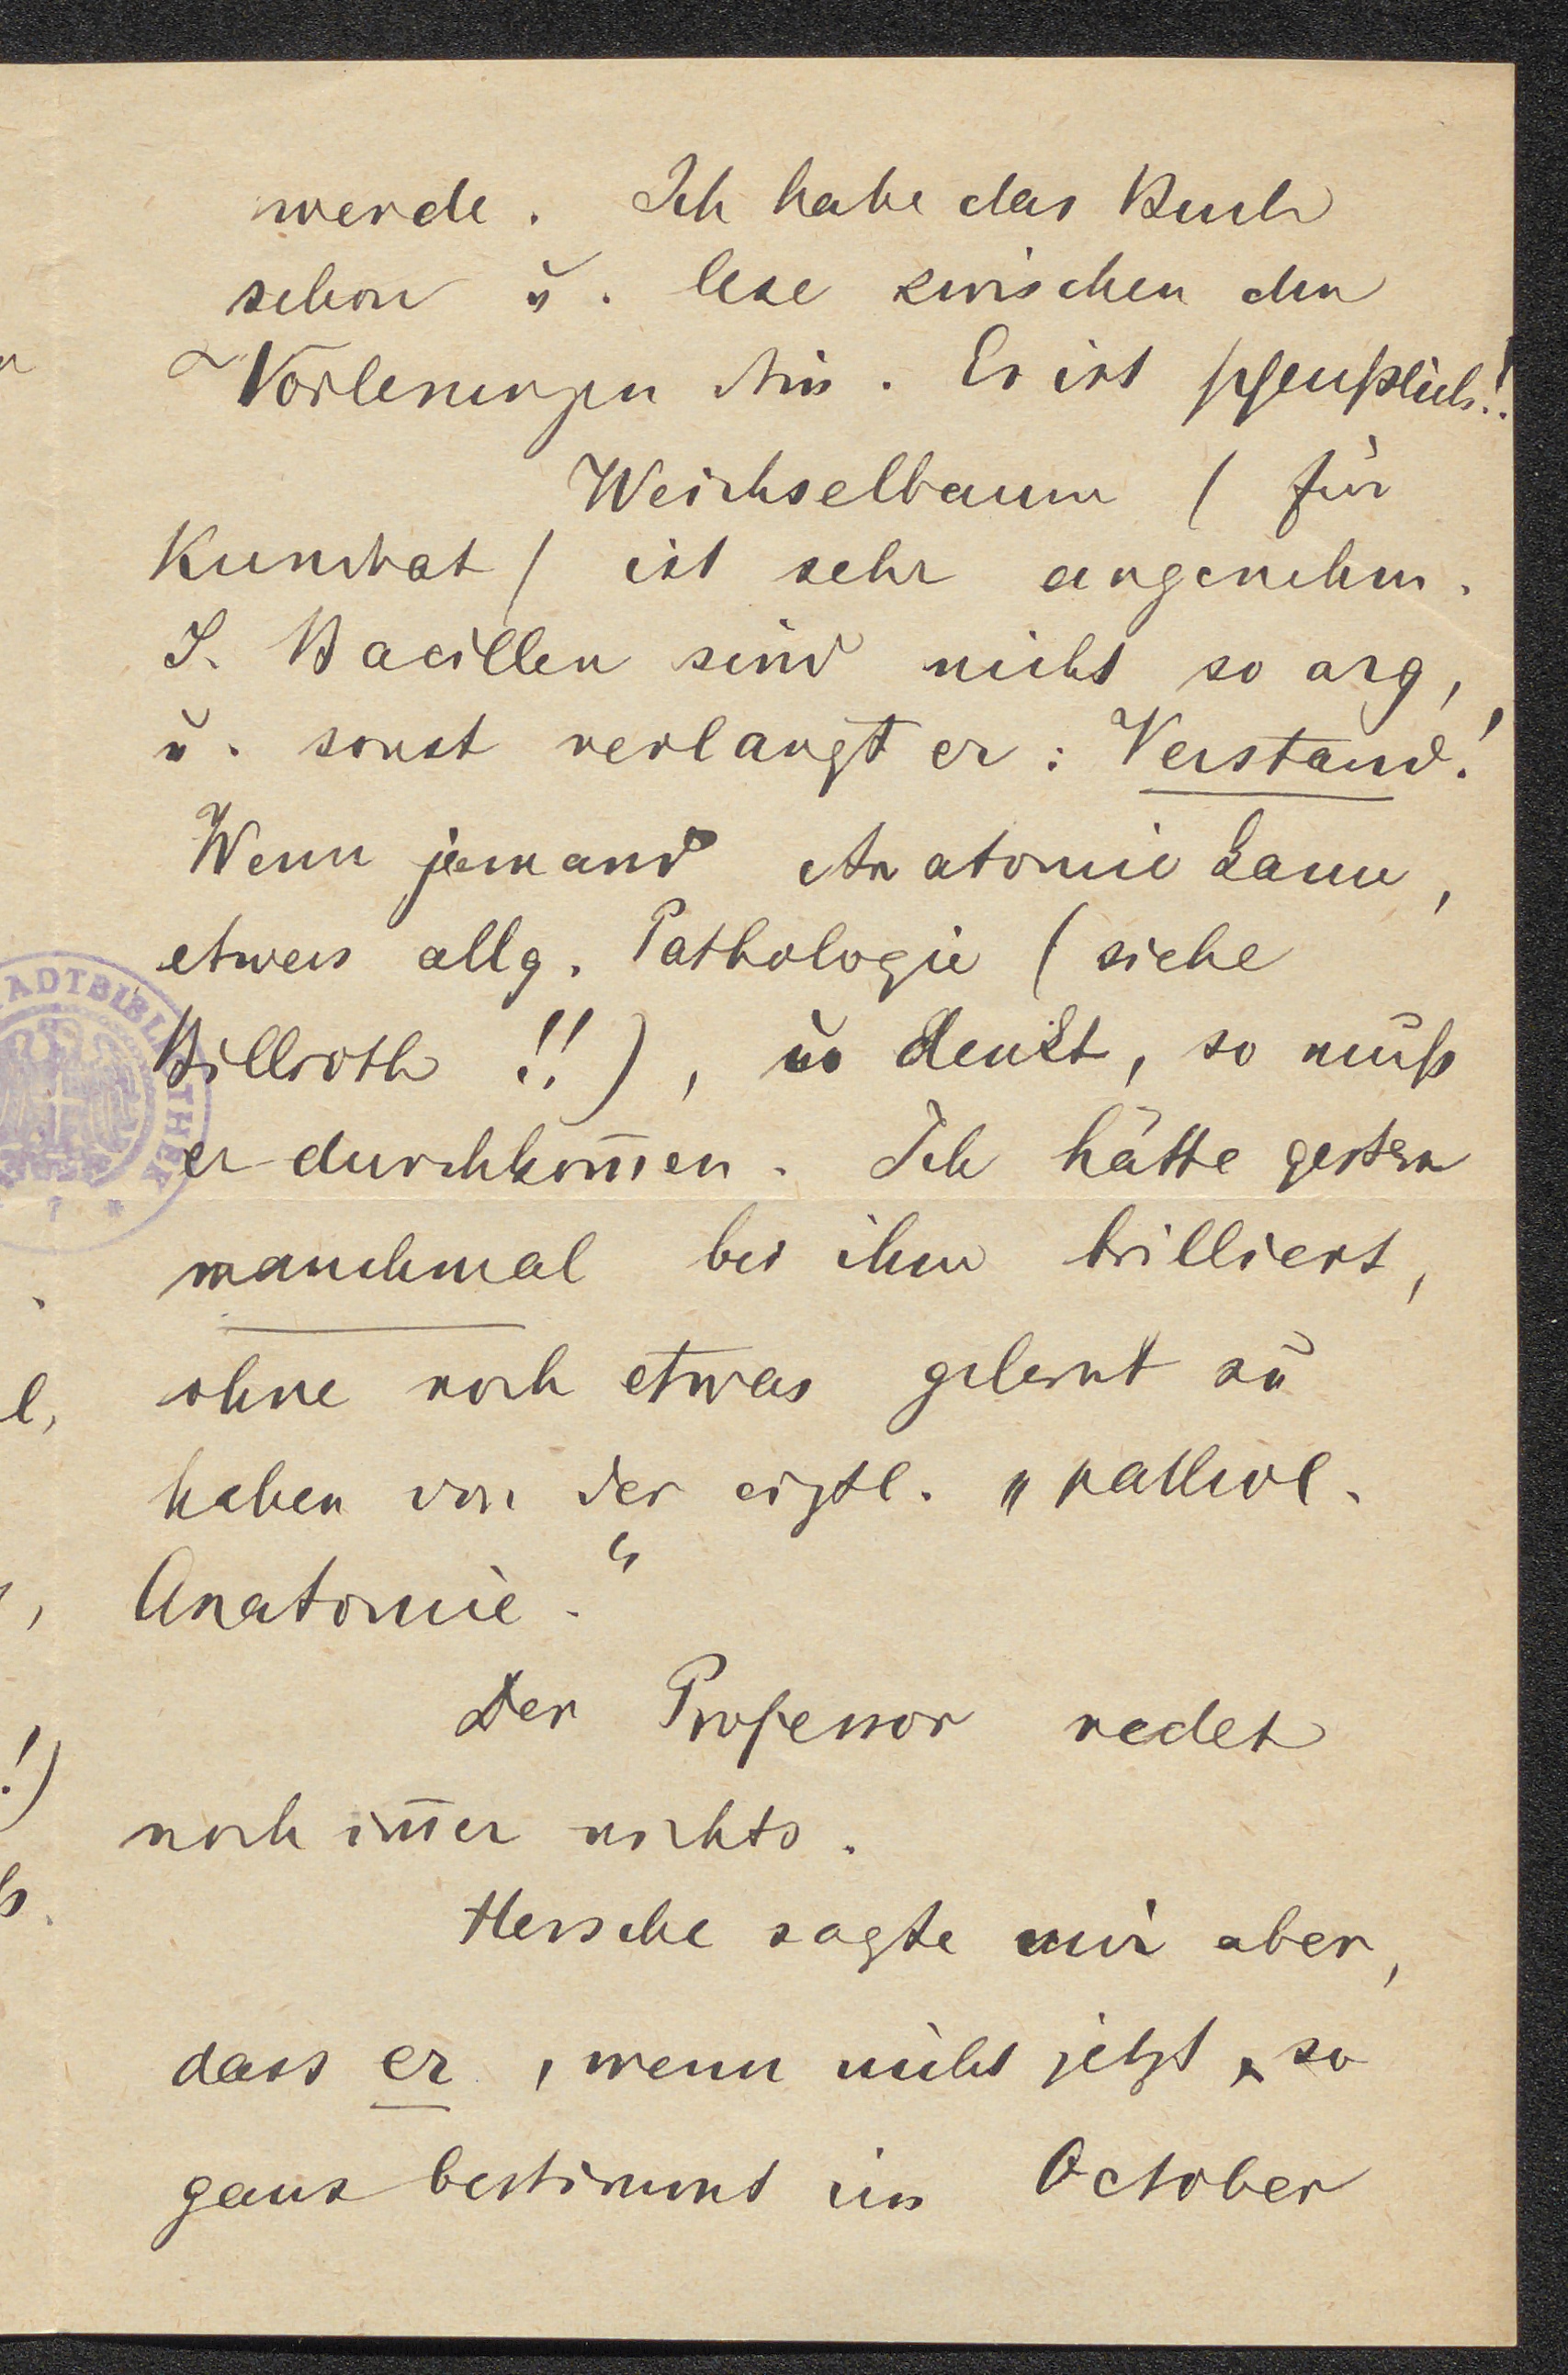 werde. Ich habe das Buch
schon u. lese zwischen den
Vorlesungen drin. Es ist scheußlich!!
Weichselbaum (für
Kundrat) ist sehr angenehm.
S. Bacillen sind nicht so arg,
u. sonst verlangt er: Verstand!
Wenn jemand Anatomie kann,
etwas allg. Pathologie (siehe
Billroth !!), u denkt, so muß
er durchkom̅en. Ich hätte gestern
manchmal bei ihm brilliert,
ohne noch etwas gelernt zu
haben von der eigtl. „pathol.
Anatomie."
Der Professor redet
noch im̅er nichts.
sagte mir aber,
dass er, wenn nicht jetzt, so
ganz bestimmt im October
STADTBIBLIOTHEK
l,
!)